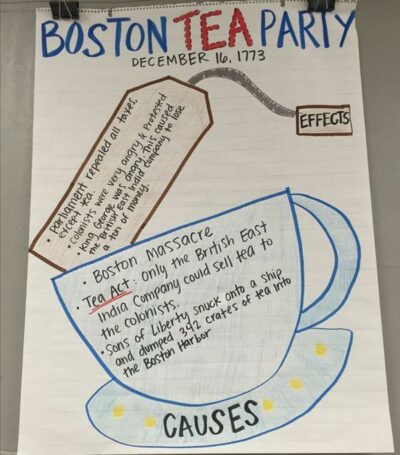 BOSTON TEA PARTY
DECEMBER 16, 1773
EFFECTS
• Parliament repealed all taxes,
except tea.
• Colonists were very angry & Protested
• King George was angry. This caused
the British East India Company to lose
a ton of money.
• Boston Massacre
• Tea Act: only the British East
India Company could sell tea to
the colonists.
• Sons of Liberty snuck onto a ship
and dumped 342 crates of tea into
the Boston Harbor
CAUSES